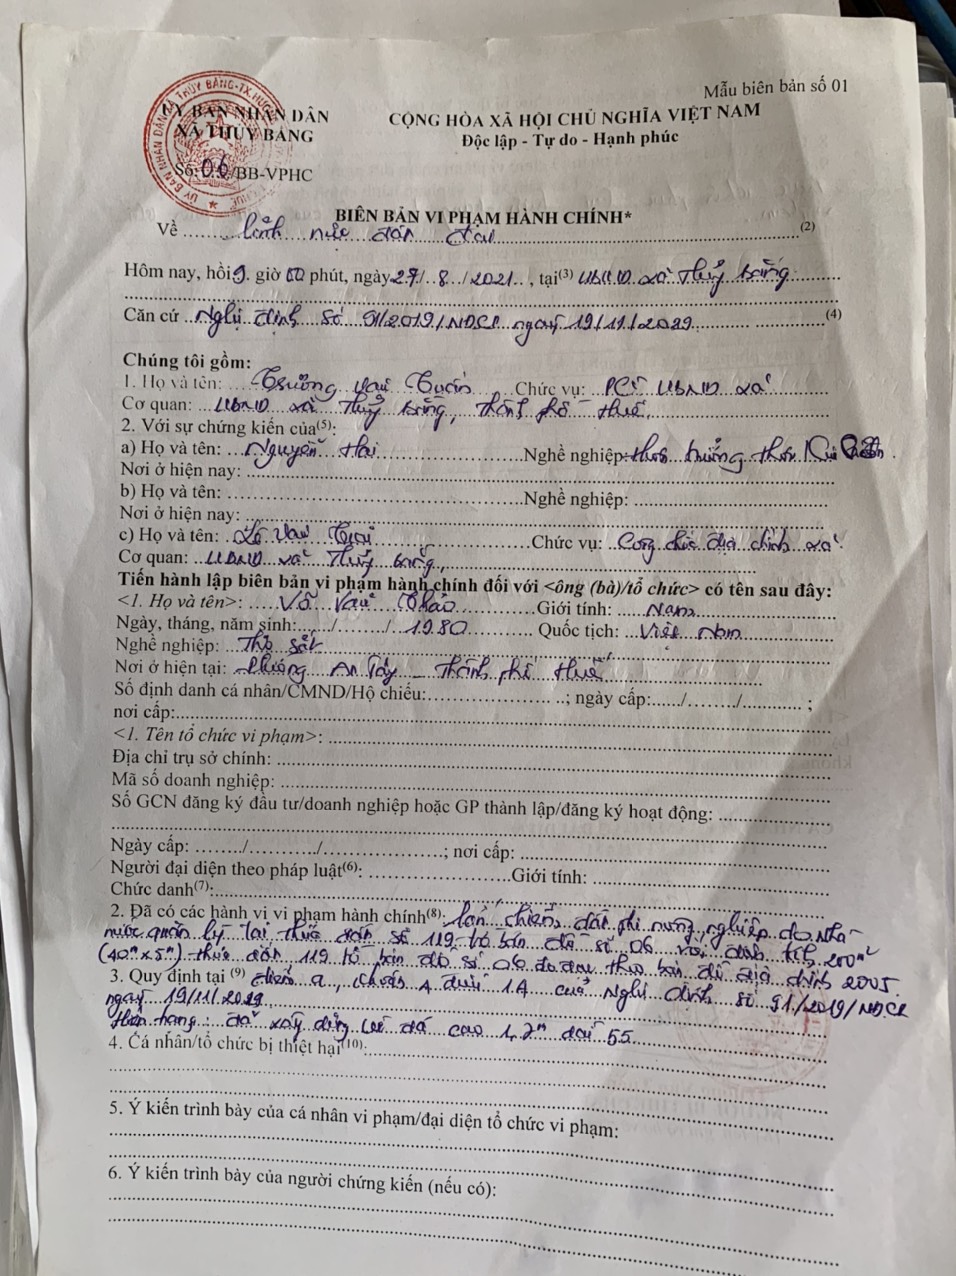 Mẫu biên bản số 01
ỦY BAN NHÂN DÂN
XÃ THỦY BẰNG
CỘNG HÒA XÃ HỘI CHỦ NGHĨA VIỆT NAM
Độc lập - Tự do - Hạnh phúc
Số: 06/BB-VPHC
BIÊN BẢN VI PHẠM HÀNH CHÍNH*
Về lĩnh vực đất đai (2)
Hôm nay, hồi 9. giờ 00 phút, ngày 27/ 8 /2021, tại(3) UBND xã Thủy Bằng
Căn cứ Nghị định số 91/2019/NĐCP ngày 19/11/2019 (4)
Chúng tôi gồm:
1. Họ và tên: Trường Chức vụ: PCT UBND xã
Cơ quan: UBND xã Thủy Bằng, thành phố Huế.
2. Với sự chứng kiến của(5):
a) Họ và tên: Nguyễn Hai Nghề nghiệp: thôn trưởng thôn
Nơi ở hiện nay:
b) Họ và tên: Nghề nghiệp:
Nơi ở hiện nay:
c) Họ và tên: Lê Văn Chức vụ: Công chức địa chính xã
Cơ quan: UBND xã Thủy Bằng,
Tiến hành lập biên bản vi phạm hành chính đối với <ông (bà)/tổ chức> có tên sau đây:
<1. Họ và tên>: Võ Văn Giới tính: Nam
Ngày, tháng, năm sinh: / / 1980 Quốc tịch: Việt Nam
Nghề nghiệp: Thợ sắt
Nơi ở hiện tại: Phường An Tây - thành phố Huế
Số định danh cá nhân/CMND/Hộ chiếu: ; ngày cấp: / / ;
nơi cấp:
<1. Tên tổ chức vi phạm>:
Địa chỉ trụ sở chính:
Mã số doanh nghiệp:
Số GCN đăng ký đầu tư/doanh nghiệp hoặc GP thành lập/đăng ký hoạt động:
Ngày cấp: / / ; nơi cấp:
Người đại diện theo pháp luật(6): Giới tính:
Chức danh(7):
2. Đã có các hành vi vi phạm hành chính(8): lấn, chiếm đất phi nông nghiệp do nhà
nước quản lý tại thửa đất số 119 tờ bản đồ số 06 với diện tích 200m²
(40m x 5m) thửa đất 119 tờ bản đồ số 06 đo đạc theo bản đồ địa chính 2005
3. Quy định tại (9) điểm a, khoản 4 điều 14 của Nghị định số 91/2019/NĐCP
ngày 19/11/2019
Hiện trạng: đã xây dựng bờ đá cao 1,2m dài 55
4. Cá nhân/tổ chức bị thiệt hại(10):
5. Ý kiến trình bày của cá nhân vi phạm/đại diện tổ chức vi phạm:
6. Ý kiến trình bày của người chứng kiến (nếu có):